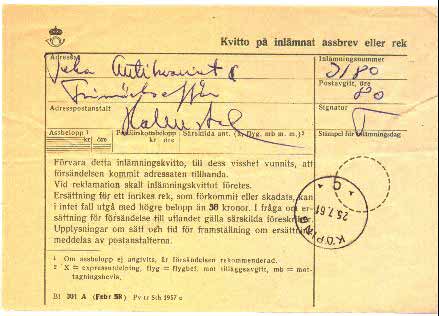 Kvitto på inlämnat assbrev eller rek
Adressat
Inlämningsnummer
3180
Postavgift, öre
80
Adresspostanstalt
Signatur
Halmstad
Assbelopp ¹ Postförskottsbelopp Särskilda ant. (x, flyg, mb m m.)² Stämpel för inlämningsdag
kr öre kr
Förvara detta inlämningskvitto, till dess visshet vunnits, att
försändelsen kommit adressaten tillhanda.
Vid reklamation skall inlämningskvittot företes.
Ersättning för ett inrikes rek, som förkommit eller skadats, kan
i intet fall utgå med högre belopp än 38 kronor. I fråga om er-
sättning för försändelse till utlandet gälla särskilda föreskrifter.
Upplysningar om sätt och tid för framställning om ersättning
meddelas av postanstalterna.
KÖPING
25.7.61
¹ Om assbelopp ej angivits, är försändelsen rekommenderad.
² X = expressutdelning, flyg = flygbef. mot tilläggsavgift, mb = mot-
tagningsbevis.
Bl 301 A (Febr 58) Pv tr Sth 1957